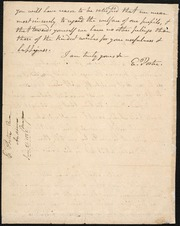 you will have reason to be satisfied that we mean
most sincerely to regard the welfare of our people, &
that towards yourself we have no other feelings than
those of the kindest wishes for your usefulness &
happiness.
I am truly yours &
E. Porter.
E. Porter